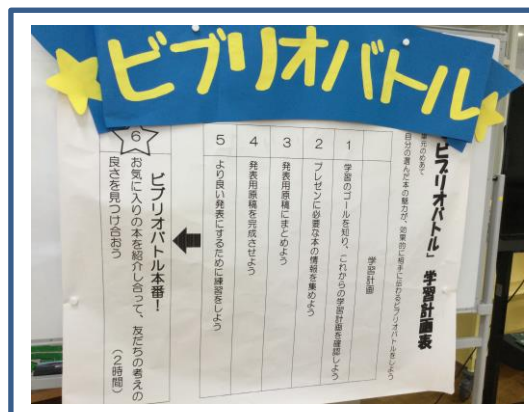 ビブリオバトル
「ビブリオバトル」学習計画表
単元のめあて
自分の選んだ本の魅力が、効果的に相手に伝わるビブリオバトルをしよう
学習計画
1 学習のゴールを知り、これからの学習計画を確認しよう
2 プレゼンに必要な本の情報を集めよう
3 発表用原稿にまとめよう
4 発表用原稿を完成させよう
5 より良い発表にするために練習をしよう
6 ビブリオバトル本番!
お気に入りの本を紹介し合って、友だちの考えの
良さを見つけ合おう
(2時間)